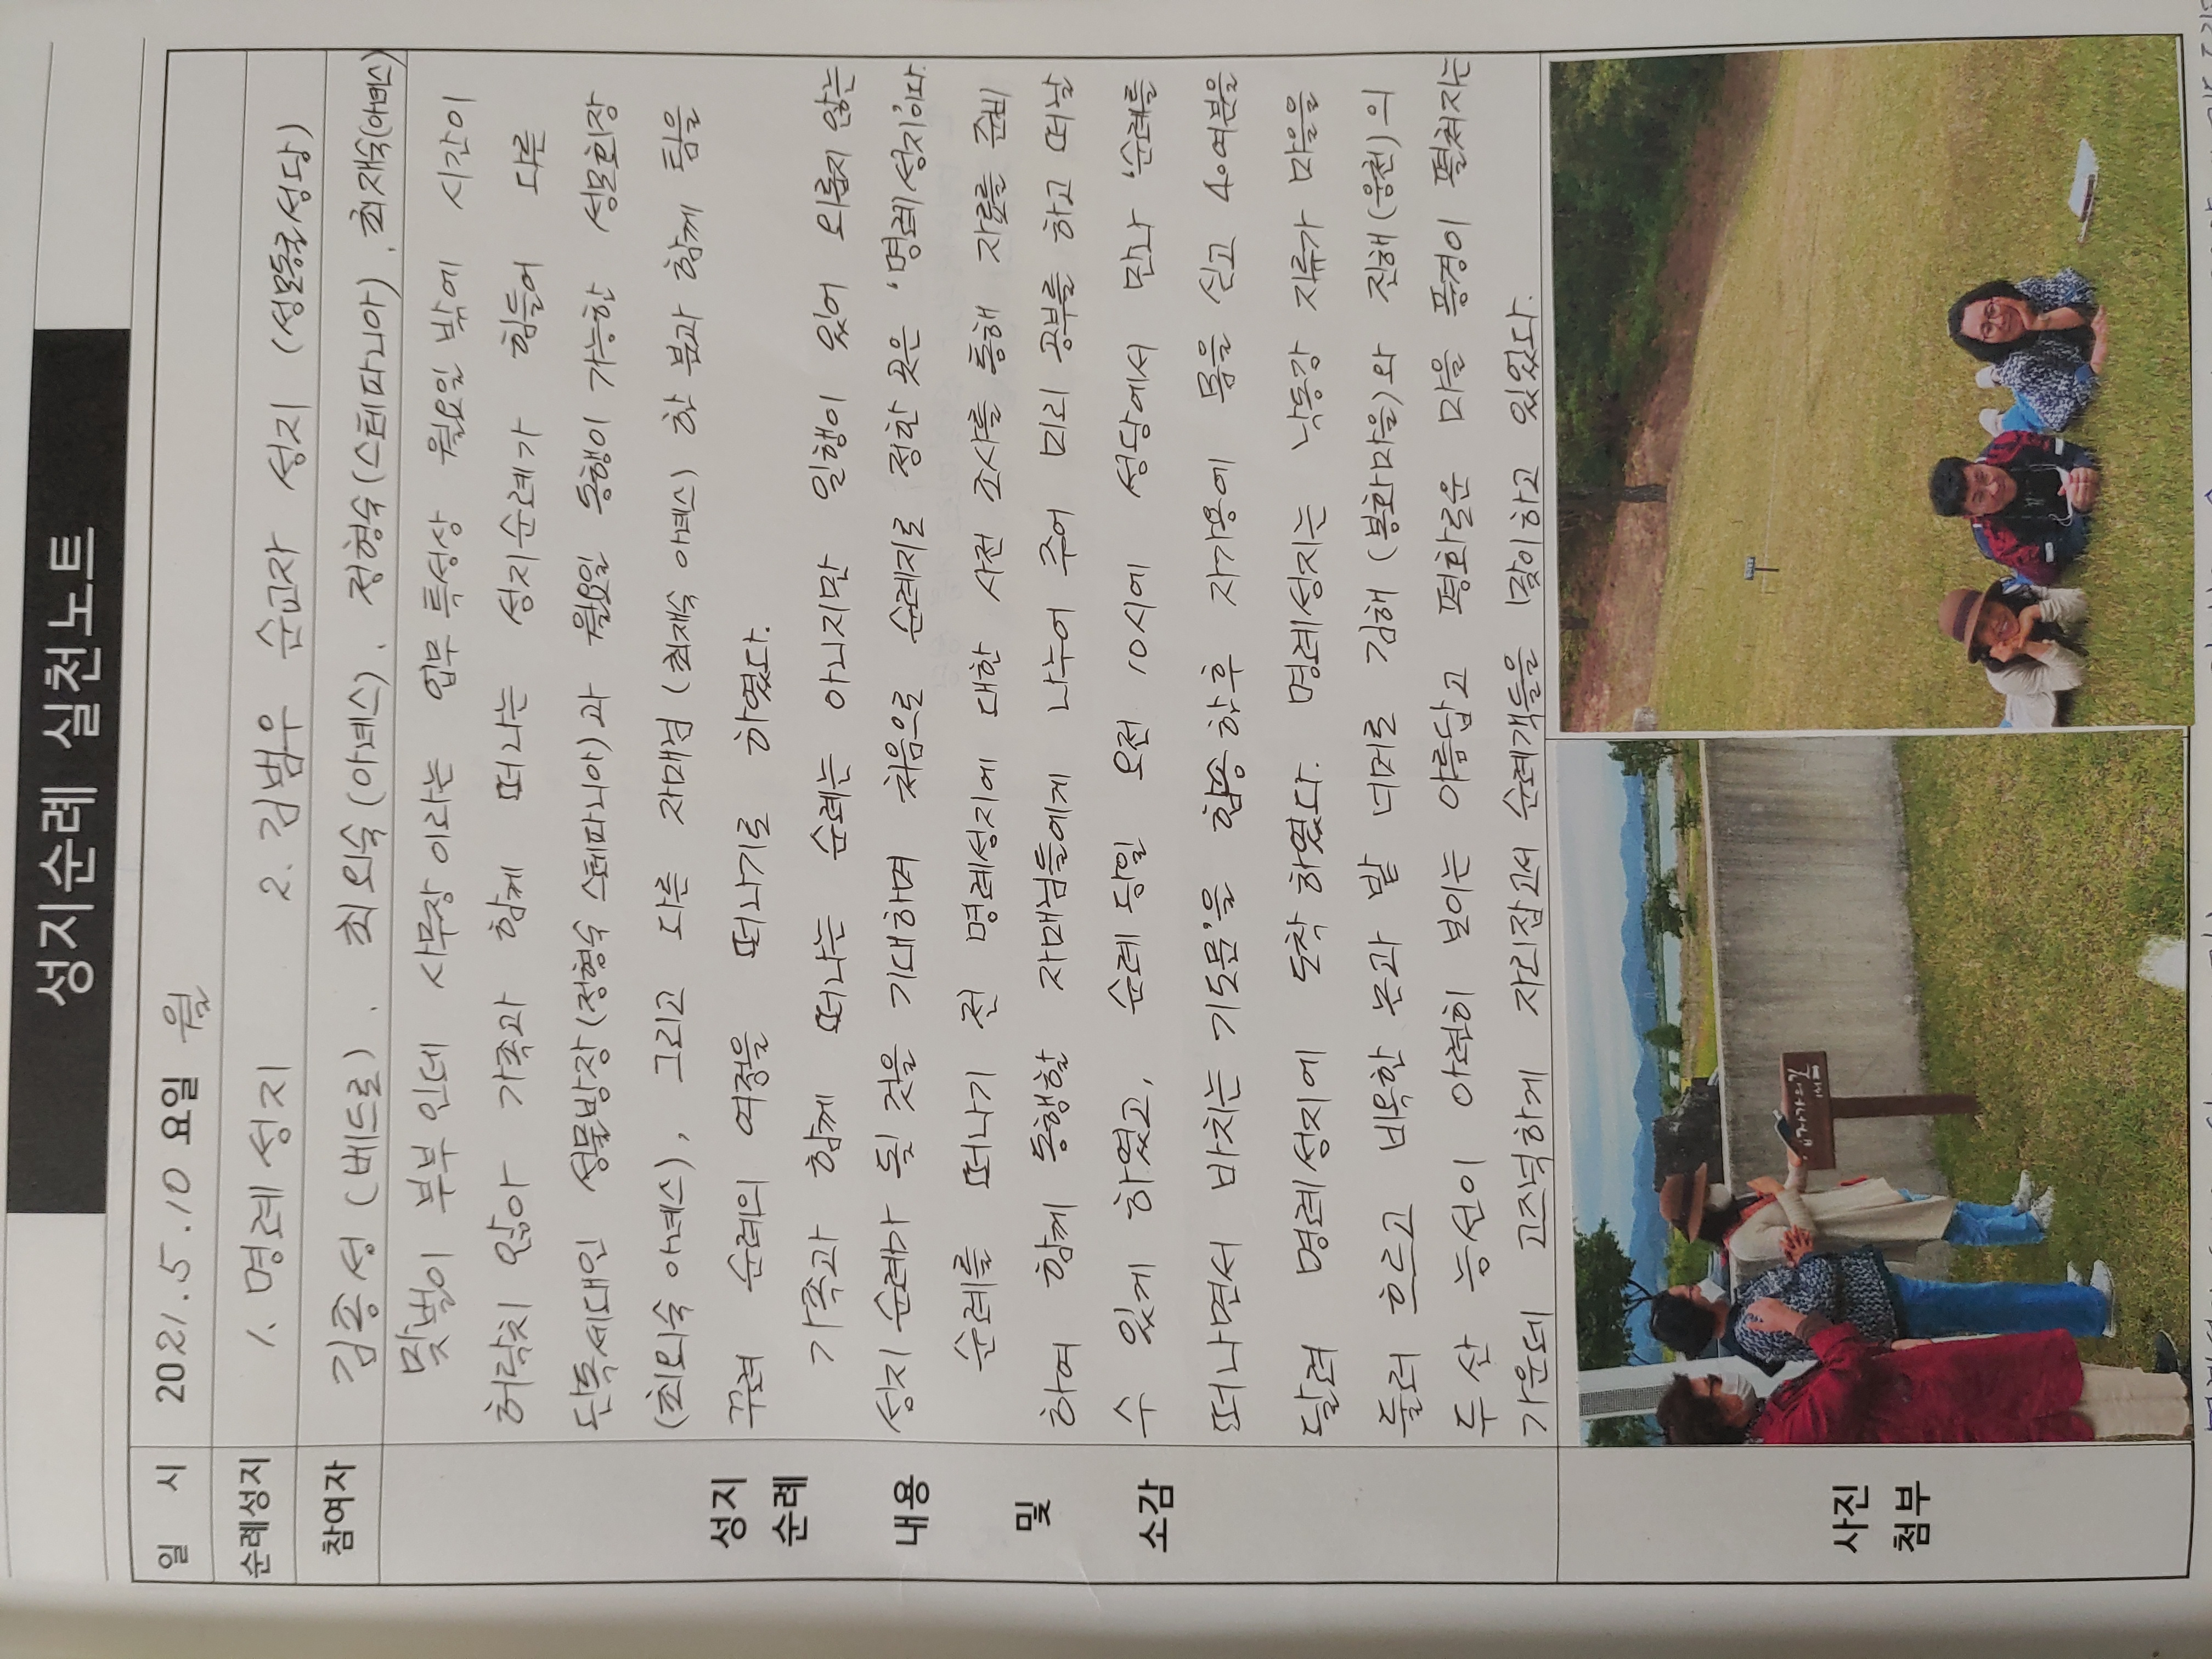 성지순례 실천노트
일 시 2021.5.10 요일 월
순례성지 1. 명례성지 2. 김범우 순교자 성지 (성모동굴성당)
참여자 김종성(베드로). 최외숙(아녜스). 정형숙(스테파니아). 최재숙(아녜스)
성지
순례
내용
및
소감
맞벌이 부부인데 사무장이라는 업무 특성상 월요일 밖에 시간이
허락치 않아 가족과 함께 떠나는 성지순례가 힘들어 다른
단독세대인 성물방장(정형숙 스테파니아)과 월요일 동행이 가능한 성모회장
(최외숙 아녜스), 그리고 다른 자매님(최재숙 아녜스) 한 분과 함께 팀을
꾸려 순례의 여정을 떠나기로 하였다.
가족과 함께 떠나는 순례는 아니지만 일행이 있어 외롭지 않는
성지순례가 될 것을 기대하며 처음으로 순례지로 정한 곳은 '명례성지'이다.
순례를 떠나기 전 명례성지에 대한 사전 조사를 통해 자료를 준비
하여 함께 동행할 자매님들에게 나누어 주어 미리 공부를 하고 떠날
수 있게 하였고, 순례 당일 오전 10시에 성당에서 만나 '순례를
떠나면서 바치는 기도문'을 합송한후 자가용에 몸을 싣고 40여분을
달려 명례성지에 도착하였다. 명례성지는 낙동강 지류가 마을을
둘러 흐르고 비옥한 논과 밭 너머로 김해(봉화마을)와 진해(웅천)의
두 산 능선이 아련히 보이는 아름답고 평화로운 마을 풍경이 펼쳐지는
가운데 고즈넉하게 자리잡고서 순례객들을 맞이하고 있었다.
사진
첨부